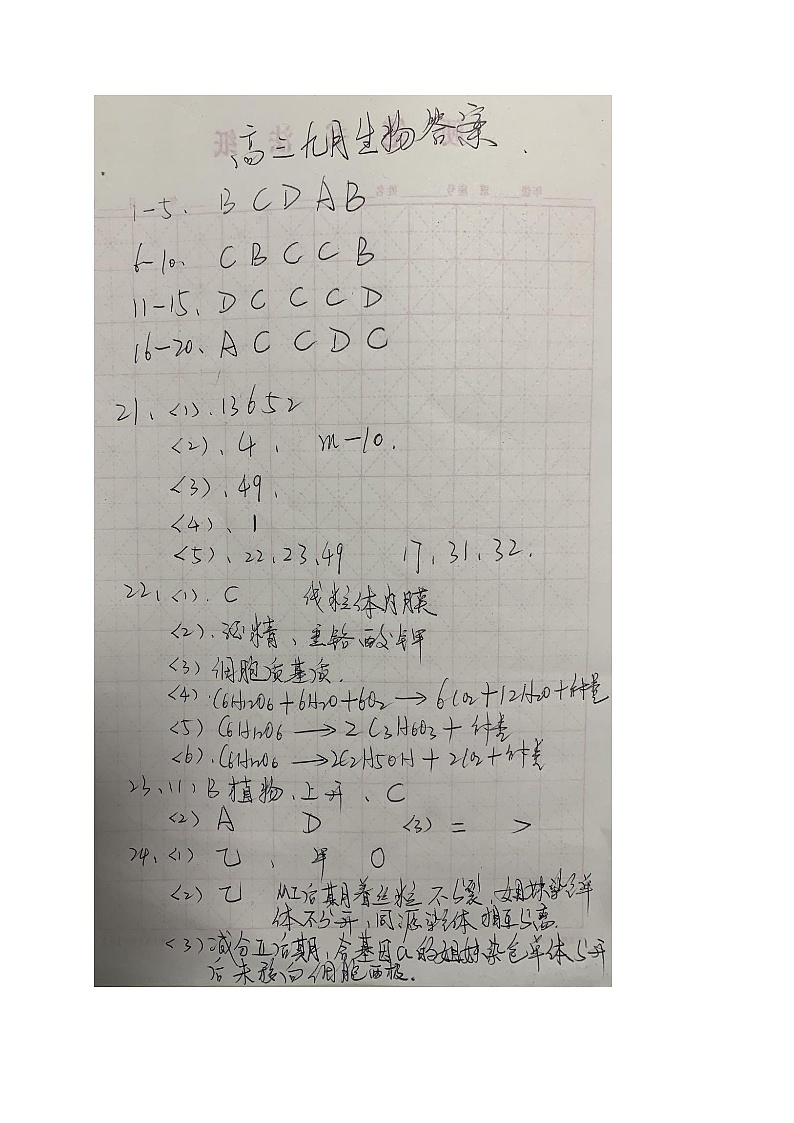 高三九月生物答案.
1-5. B C D A B
6-10. C B C C B
11-15. D C C C D
16-20. A C C D C
21、<1>. 13652
<2>、4、 m-10.
<3>、49、
<4>、1
<5>、22、23、49 17、31、32.
22、<1>. C 线粒体内膜
<2>. 酒精、重铬酸钾
<3> 细胞质基质.
<4>. C6H12O6+6H2O+6O2→6CO2+12H2O+能量
<5> C6H12O6→2C3H6O3+能量
<6>. C6H12O6→2C2H5OH+2CO2+能量
23、(1) B 植物、上升、C
<2> A D <3> = >
24、<1> 乙、甲 0
<2> 乙 MI后期着丝粒不分裂,姐妹染色单
体不分开,同源染色体相互分离.
<3> 减分II后期,含基因a的姐妹染色单体分开
后未移向细胞两极.